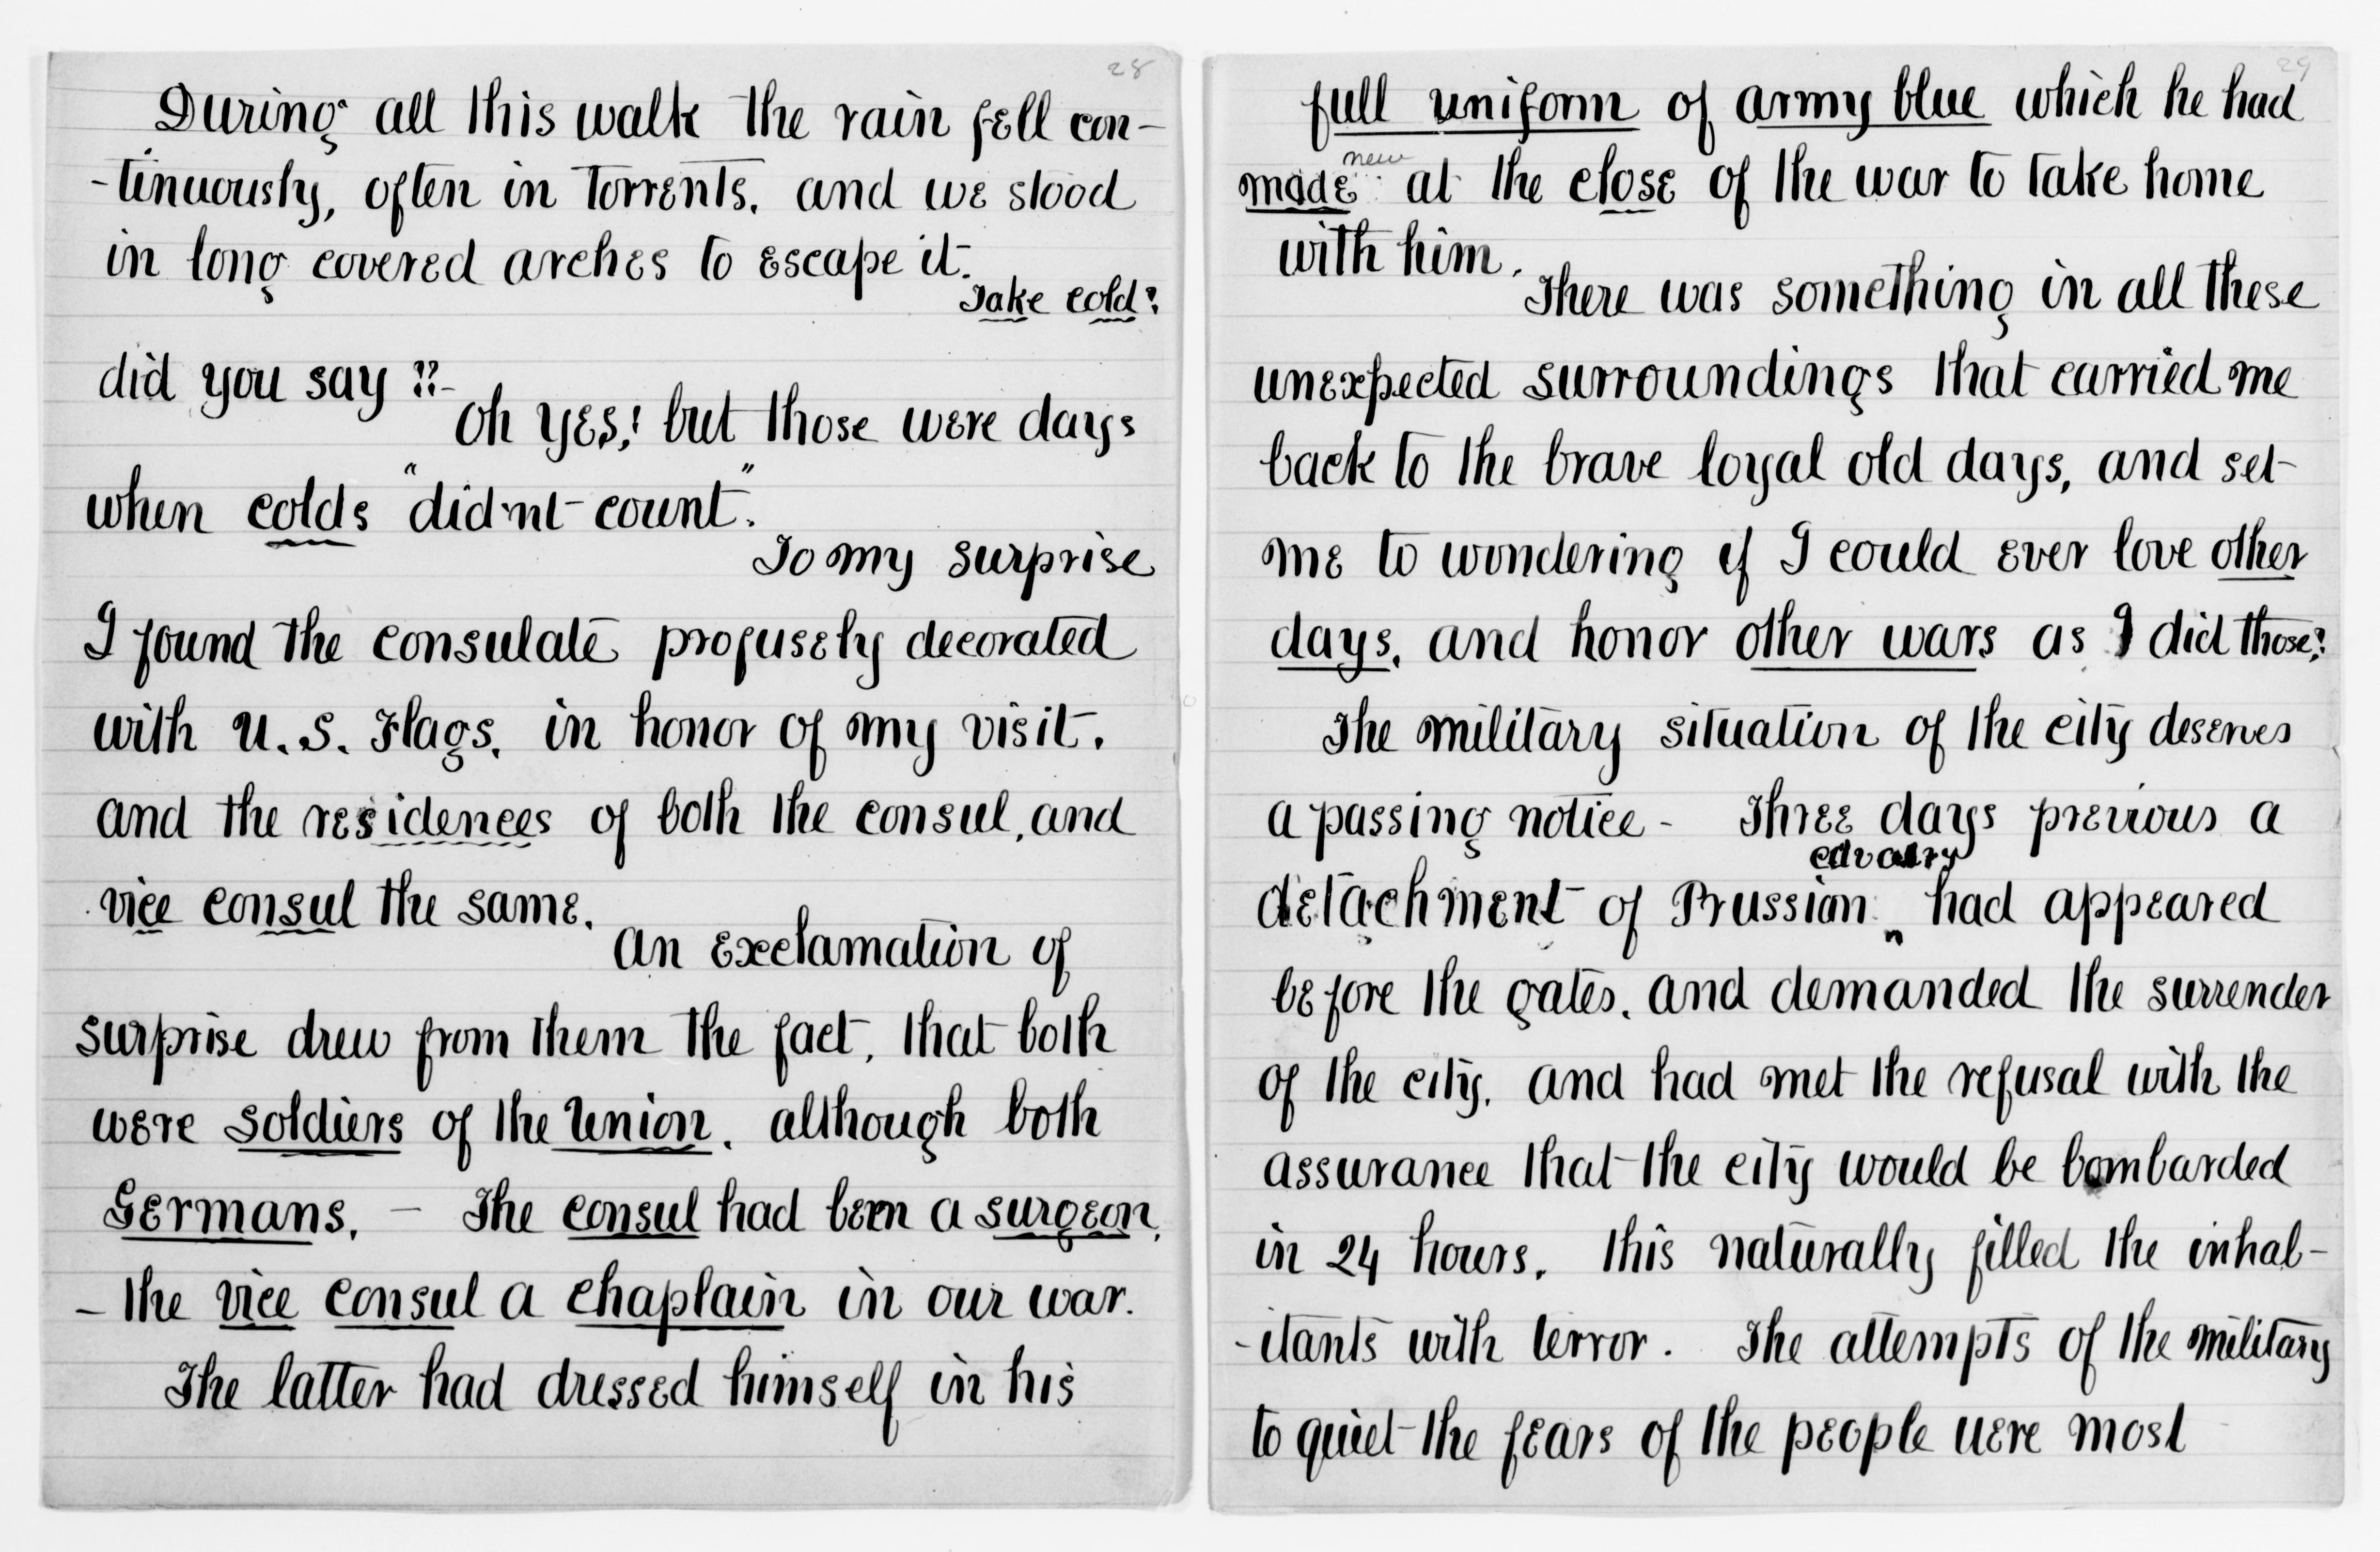 28
During all this walk the rain fell con-
-tinuously, often in torrents, and we stood
in long covered arches to escape it.
Take cold?
did you say ??-
Oh yes,! but those were days
when colds "did'nt count".
To my surprise
I found the consulate profusely decorated
with U. S. Flags, in honor of my visit,
and the residences of both the consul, and
vice consul the same.
An exclamation of
surprise drew from them the fact, that both
were soldiers of the Union, although both
Germans. - The consul had been a surgeon,
- the vice consul a chaplain in our war.
The latter had dressed himself in his
29
full uniform of army blue which he had
new
made at the close of the war to take home
with him.
There was something in all these
unexpected surroundings that carried me
back to the brave loyal old days, and set
me to wondering if I could ever love other
days, and honor other wars as I did those?
The military situation of the city deserves
a passing notice - Three days previous a
cavalry
detachment of Prussian ^ had appeared
before the gates, and demanded the surrender
of the city, and had met the refusal with the
assurance that the city would be bombarded
in 24 hours. This naturally filled the inhab-
-itants with terror. The attempts of the military
to quiet the fears of the people were most